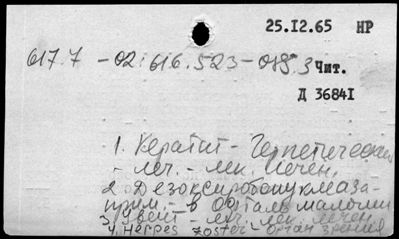 25.12.65 НР
617.7 - 02:616.523-085.3 Чит.
Д 36841
1. Кератит - Герпетический
- леч. - лек. лечен.
2. Дезоксирибонуклеаза-
прим. - в офтальмологии
3. Увеит - леч. лек. лечен.
4. Herpes zoster орган зрения